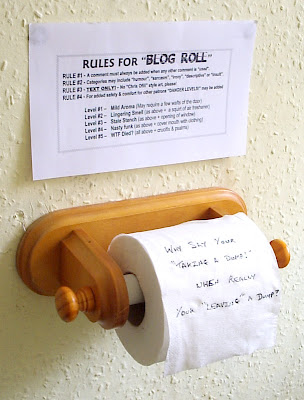 RULES FOR "BLOG ROLL"
RULE #1 - A comment must always be added when any other comment is "used".
RULE #2 - Categories may include "humour", "sarcasm", "irony", "descriptive" or "insult".
RULE #3 - TEXT ONLY! - No "Chris Ofili" style art, please!
RULE #4 - For added safety & comfort for other patrons "DANGER LEVELS" may be added
Level #1 – Mild Aroma (May require a few wafts of the door)
Level #2 – Lingering Smell (as above + a squirt of air freshener)
Level #3 – Stale Stench (as above + opening of window)
Level #4 – Nasty funk (as above + cover mouth with clothing)
Level #5 – WTF Died? (as above + crucifix & psalms)
WHY SAY YOUR
"TAKING A DUMP!"
WHEN REALLY
YOUR "LEAVING" A DUMP?